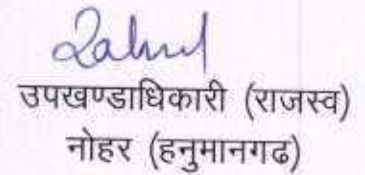 उपखण्डाधिकारी (राजस्व)
नोहर (हनुमानगढ)